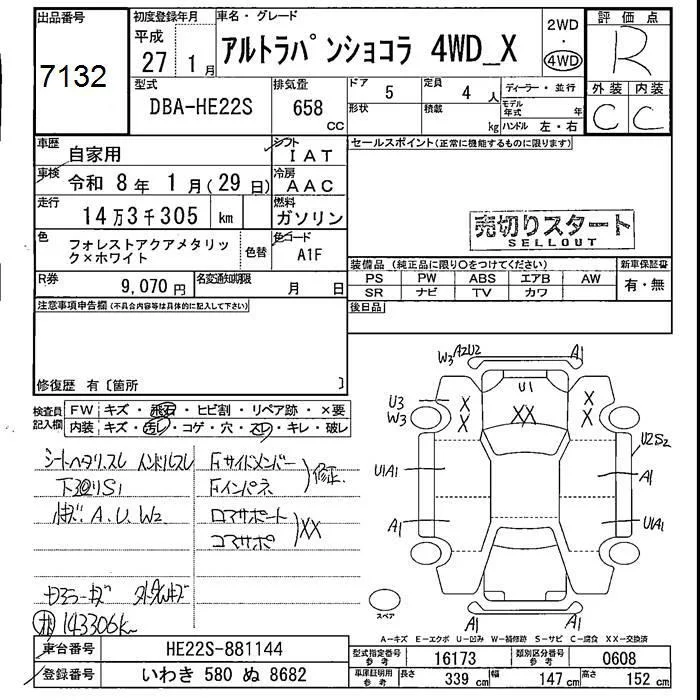 出品番号 初度登録年月 車名・グレード 評価点
7132
平成 27年 1月
アルトラパンショコラ 4WD_X
2WD・4WD
R
型式 DBA-HE22S
排気量 658 CC
ドア 5 定員 4人
形状 積載 kg
ディーラー・並行
モデル年式 年
ハンドル 左・右
外装 内装
C C
車歴 自家用
シフト IAT
車検 令和 8年 1月(29日)
冷房 AAC
走行 14万3千305 km
燃料 ガソリン
色 フォレストアクアメタリック×ホワイト
色替
色コード A1F
R券 9,070円
名変通知期限 月 日
セールスポイント(正常に機能するものに限ります)
売切りスタート
SELLOUT
装備品(純正品に限り〇をつけてください) 新車保証書
PS PW ABS エアB AW 有・無
SR ナビ TV カワ
後日品
注意事項申告欄(不具合内容等は具体的に記入して下さい)
修復歴 有〔箇所 〕
検査員記入欄
FW キズ・飛石・ヒビ割・リペア跡・×要
内装 キズ・汚レ・コゲ・穴・スレ・キレ・破レ
シートヘタリ.スレ ハンドルスレ
下廻りS1
A.U.W2
143306k
Fサイドメンバー
Fインパネ
修正
ロアサポート
コアサポ
XX
W3 A2U2 A1
U1
U3
W3
X X
X X
XX
U2S2
U1A1
A1
A1
U1A1
A1 A1
スペア
A-キズ E-エクボ U-凹み W-補修跡 S-サビ C-腐食 XX-交換済
車台番号 HE22S-881144
登録番号 いわき 580 ぬ 8682
型式指定番号 参考 16173 類別区分番号 参考 0608
車庫証明用 参考 長さ 339 cm 幅 147 cm 高さ 152 cm